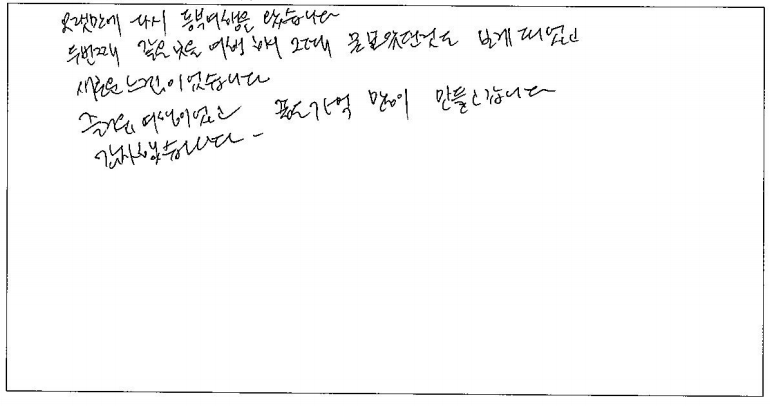 오랫만에 다시 동부여행을 왔습니다
두번째 같은 곳을 여행하니 그때 못보았던것도 보게 되었고
새로운 느낌이었습니다
즐거운 여행이었고 좋은기억 많이 만들고갑니다
감사했습니다